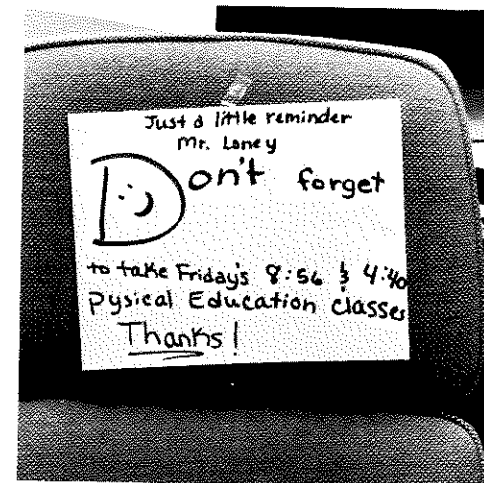 Just a little reminder
Mr. Loney
Don't forget
to take Friday's 8:56 & 4:40
Pysical Education classes
Thanks!